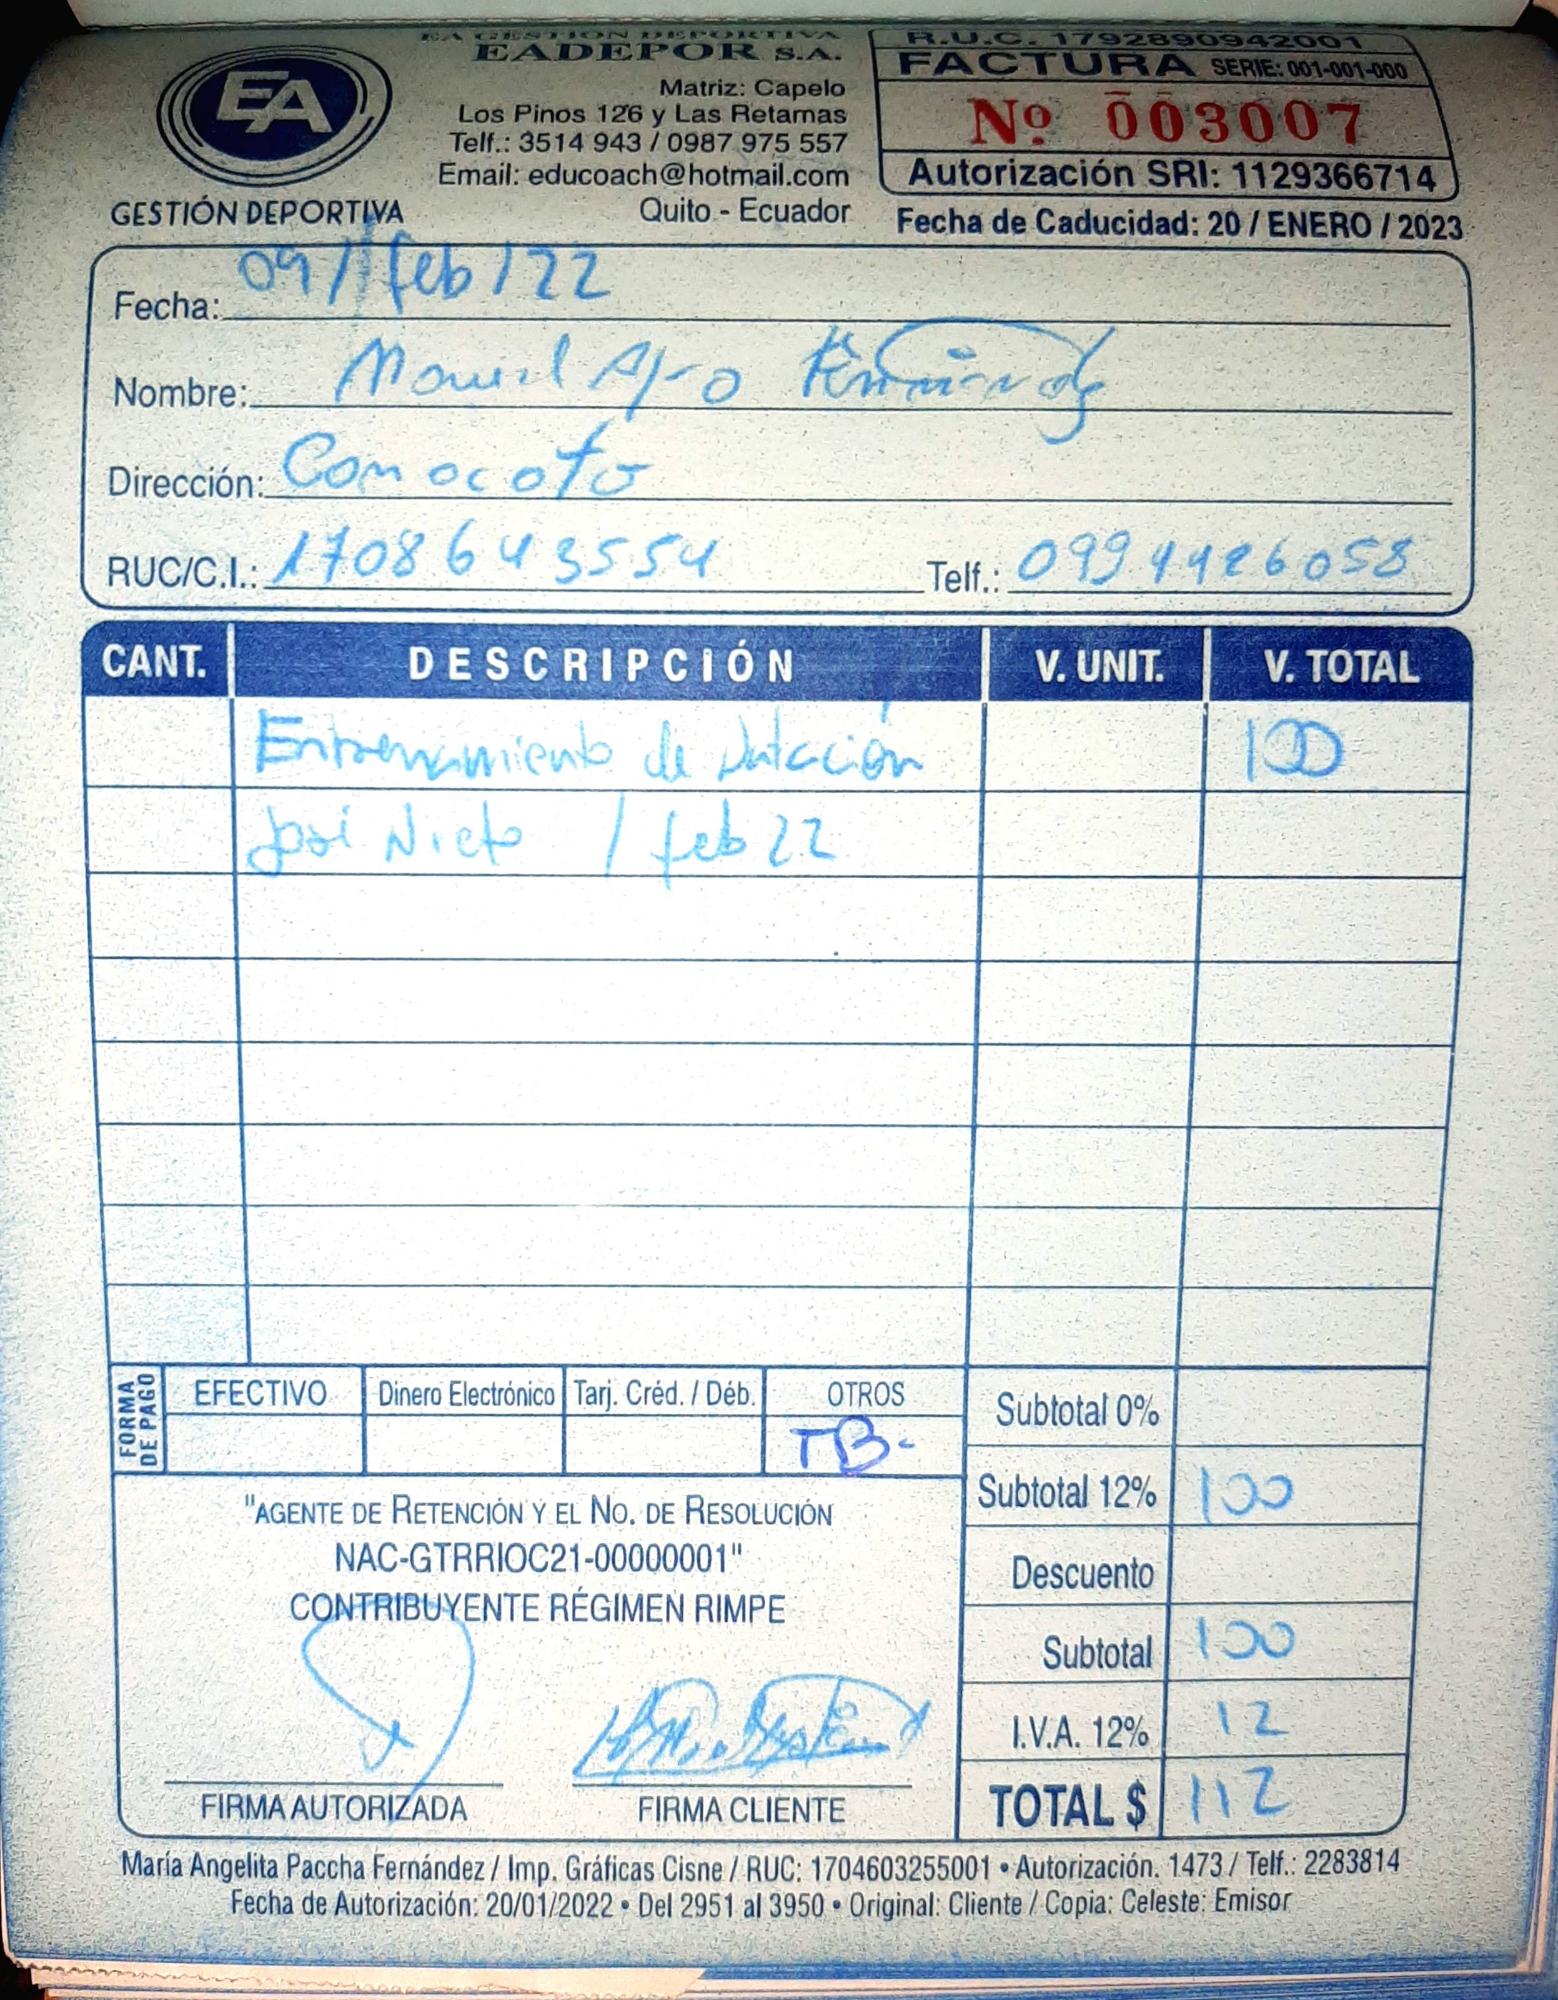 EA GESTION DEPORTIVA
EADEPOR S.A.
EA
GESTIÓN DEPORTIVA
Matriz: Capelo
Los Pinos 126 y Las Retamas
Telf.: 3514 943 / 0987 975 557
Email: educoach@hotmail.com
Quito - Ecuador
R.U.C. 1792890942001
FACTURA SERIE: 001-001-000
Nº 003007
Autorización SRI: 1129366714
Fecha de Caducidad: 20 / ENERO / 2023
Fecha: 09 / feb / 22
Nombre:
Dirección: Conocoto
RUC/C.I.: 1708643554 Telf.: 0994426058
CANT. DESCRIPCIÓN V. UNIT. V. TOTAL
Entrenamiento de Natación 100
José Nieto / feb 22
FORMA DE PAGO
EFECTIVO Dinero Electrónico Tarj. Créd. / Déb. OTROS
TB-
Subtotal 0%
Subtotal 12% 100
Descuento
Subtotal 100
I.V.A. 12% 12
TOTAL $ 112
"AGENTE DE RETENCIÓN Y EL NO. DE RESOLUCIÓN
NAC-GTRRIOC21-00000001"
CONTRIBUYENTE RÉGIMEN RIMPE
FIRMA AUTORIZADA FIRMA CLIENTE
María Angelita Paccha Fernández / Imp. Gráficas Cisne / RUC: 1704603255001 • Autorización. 1473 / Telf.: 2283814
Fecha de Autorización: 20/01/2022 • Del 2951 al 3950 • Original: Cliente / Copia: Celeste: Emisor